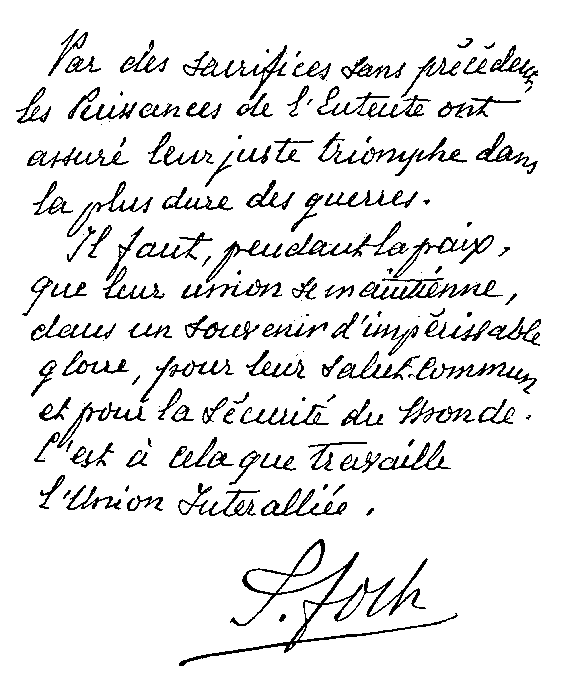 Par des sacrifices sans précédent,
les Puissances de l'Entente ont
assuré leur juste triomphe dans
la plus dure des guerres.
Il faut, pendant la paix,
que leur union se maintienne,
dans un souvenir d'impérissable
gloire, pour leur salut commun
et pour la sécurité du Monde.
C'est à cela que travaille
l'Union Interalliée.
F. Foch